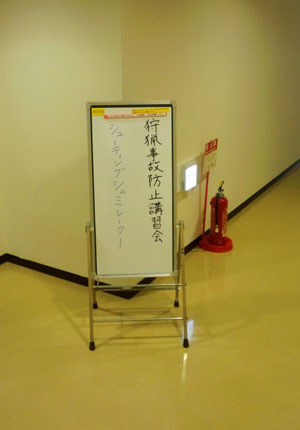 狩猟事故防止講習会
シューティングシュミレーター